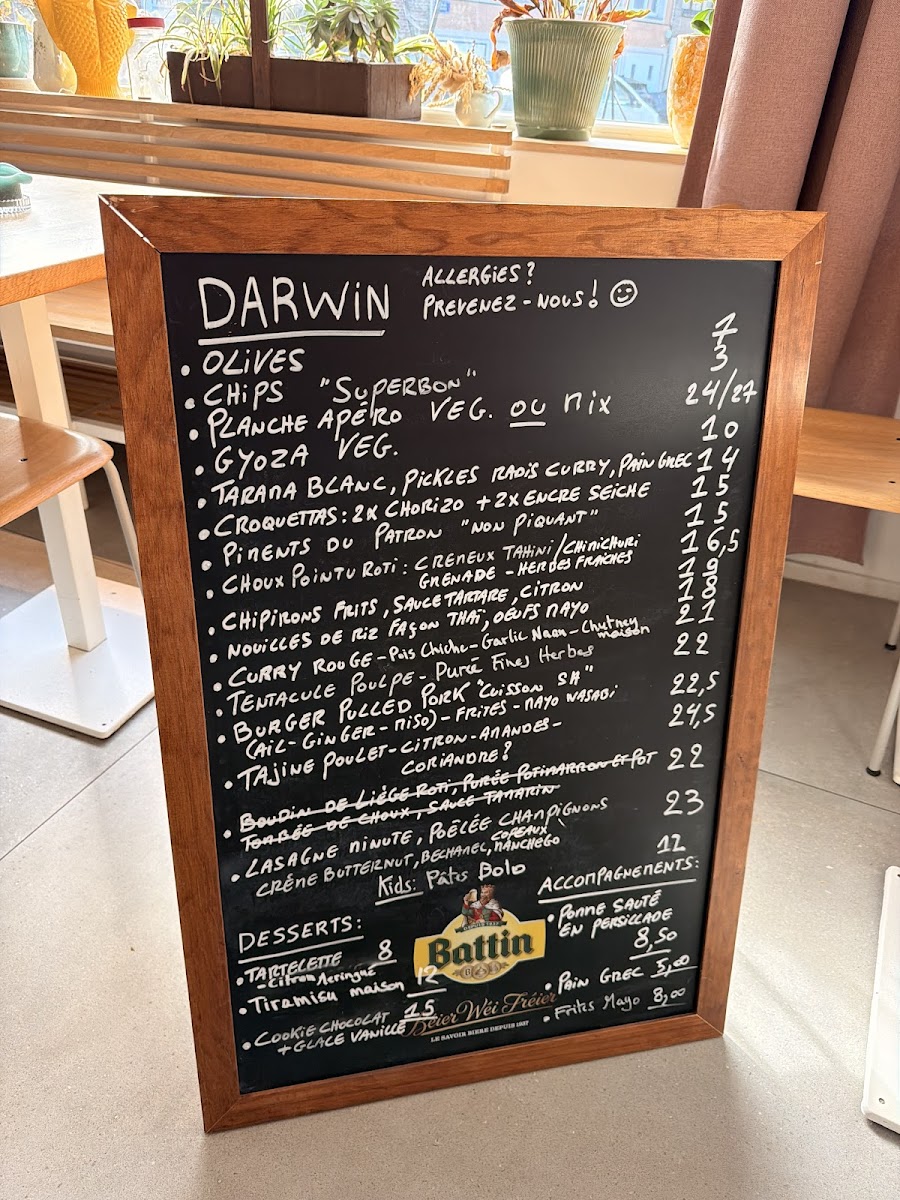 DARWIN
ALLERGIES?
PREVENEZ-NOUS! ☺
• OLIVES 7
• CHIPS "SUPERBON" 3
• PLANCHE APÉRO VEG. OU MIX 24/27
• GYOZA VEG. 10
• TARAMA BLANC, PICKLES RADIS CURRY, PAIN GREC 14
• CROQUETTAS: 2X CHORIZO + 2X ENCRE SEICHE 15
• PIMENTS DU PATRON "NON PIQUANT" 15
• CHOUX POINTU ROTI: CREMEUX TAHINI/CHIMICHURI 16,5
GRENADE - HERBES FRAÎCHES
• CHIPIRONS FRITS, SAUCE TARTARE, CITRON
• NOUILLES DE RIZ FAÇON THAÏ, OEUFS MAYO 18
• CURRY ROUGE - Pois Chiche - Garlic Naan - Chutney maison 21
• TENTACULE POULPE - Purée Fines Herbes 22
• BURGER PULLED PORK "CUISSON 5H" 22,5
(AIL - GINGER - MISO) - FRITES - MAYO WASABI
• TAJINE POULET - CITRON - AMANDES - 24,5
CORIANDRE?
• BOUDIN DE LIÈGE ROTI, PURÉE POTIMARRON ET POT 22
TOMBÉE DE CHOUX, SAUCE TAMARIN
• LASAGNE MINUTE, POÊLÉE CHAMPIGNONS 23
CRÊME BUTTERNUT, BECHAMEL, COPEAUX MANCHEGO
Kids: Pâtes Bolo 12
DESSERTS:
• TARTELETTE 8
- Citron Meringué
• Tiramisu maison 12
• COOKIE CHOCOLAT 15
+ GLACE VANILLE
ACCOMPAGNEMENTS:
• POMME SAUTÉ
EN PERSILLADE
8,50
• PAIN GREC 5,00
• Frites Mayo 8,00
Battin
Béier Wéi Fréier
LE SAVOIR BIÈRE DEPUIS 1937